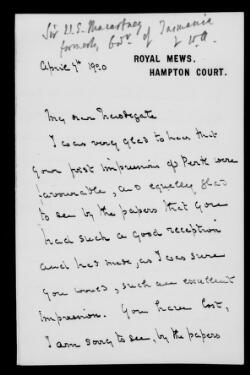 Sir
formerly Govr. of Tasmania
& W.A.
April 7th 1920
ROYAL MEWS,
HAMPTON COURT.
My dear Newdegate
I was very glad to hear that
your first impressions of Perth were
favourable, and equally glad
to see by the papers that you
had such a good reception
and had made, as I was sure
you would, such an excellent
impression. You have lost,
I am sorry to see, by the papers